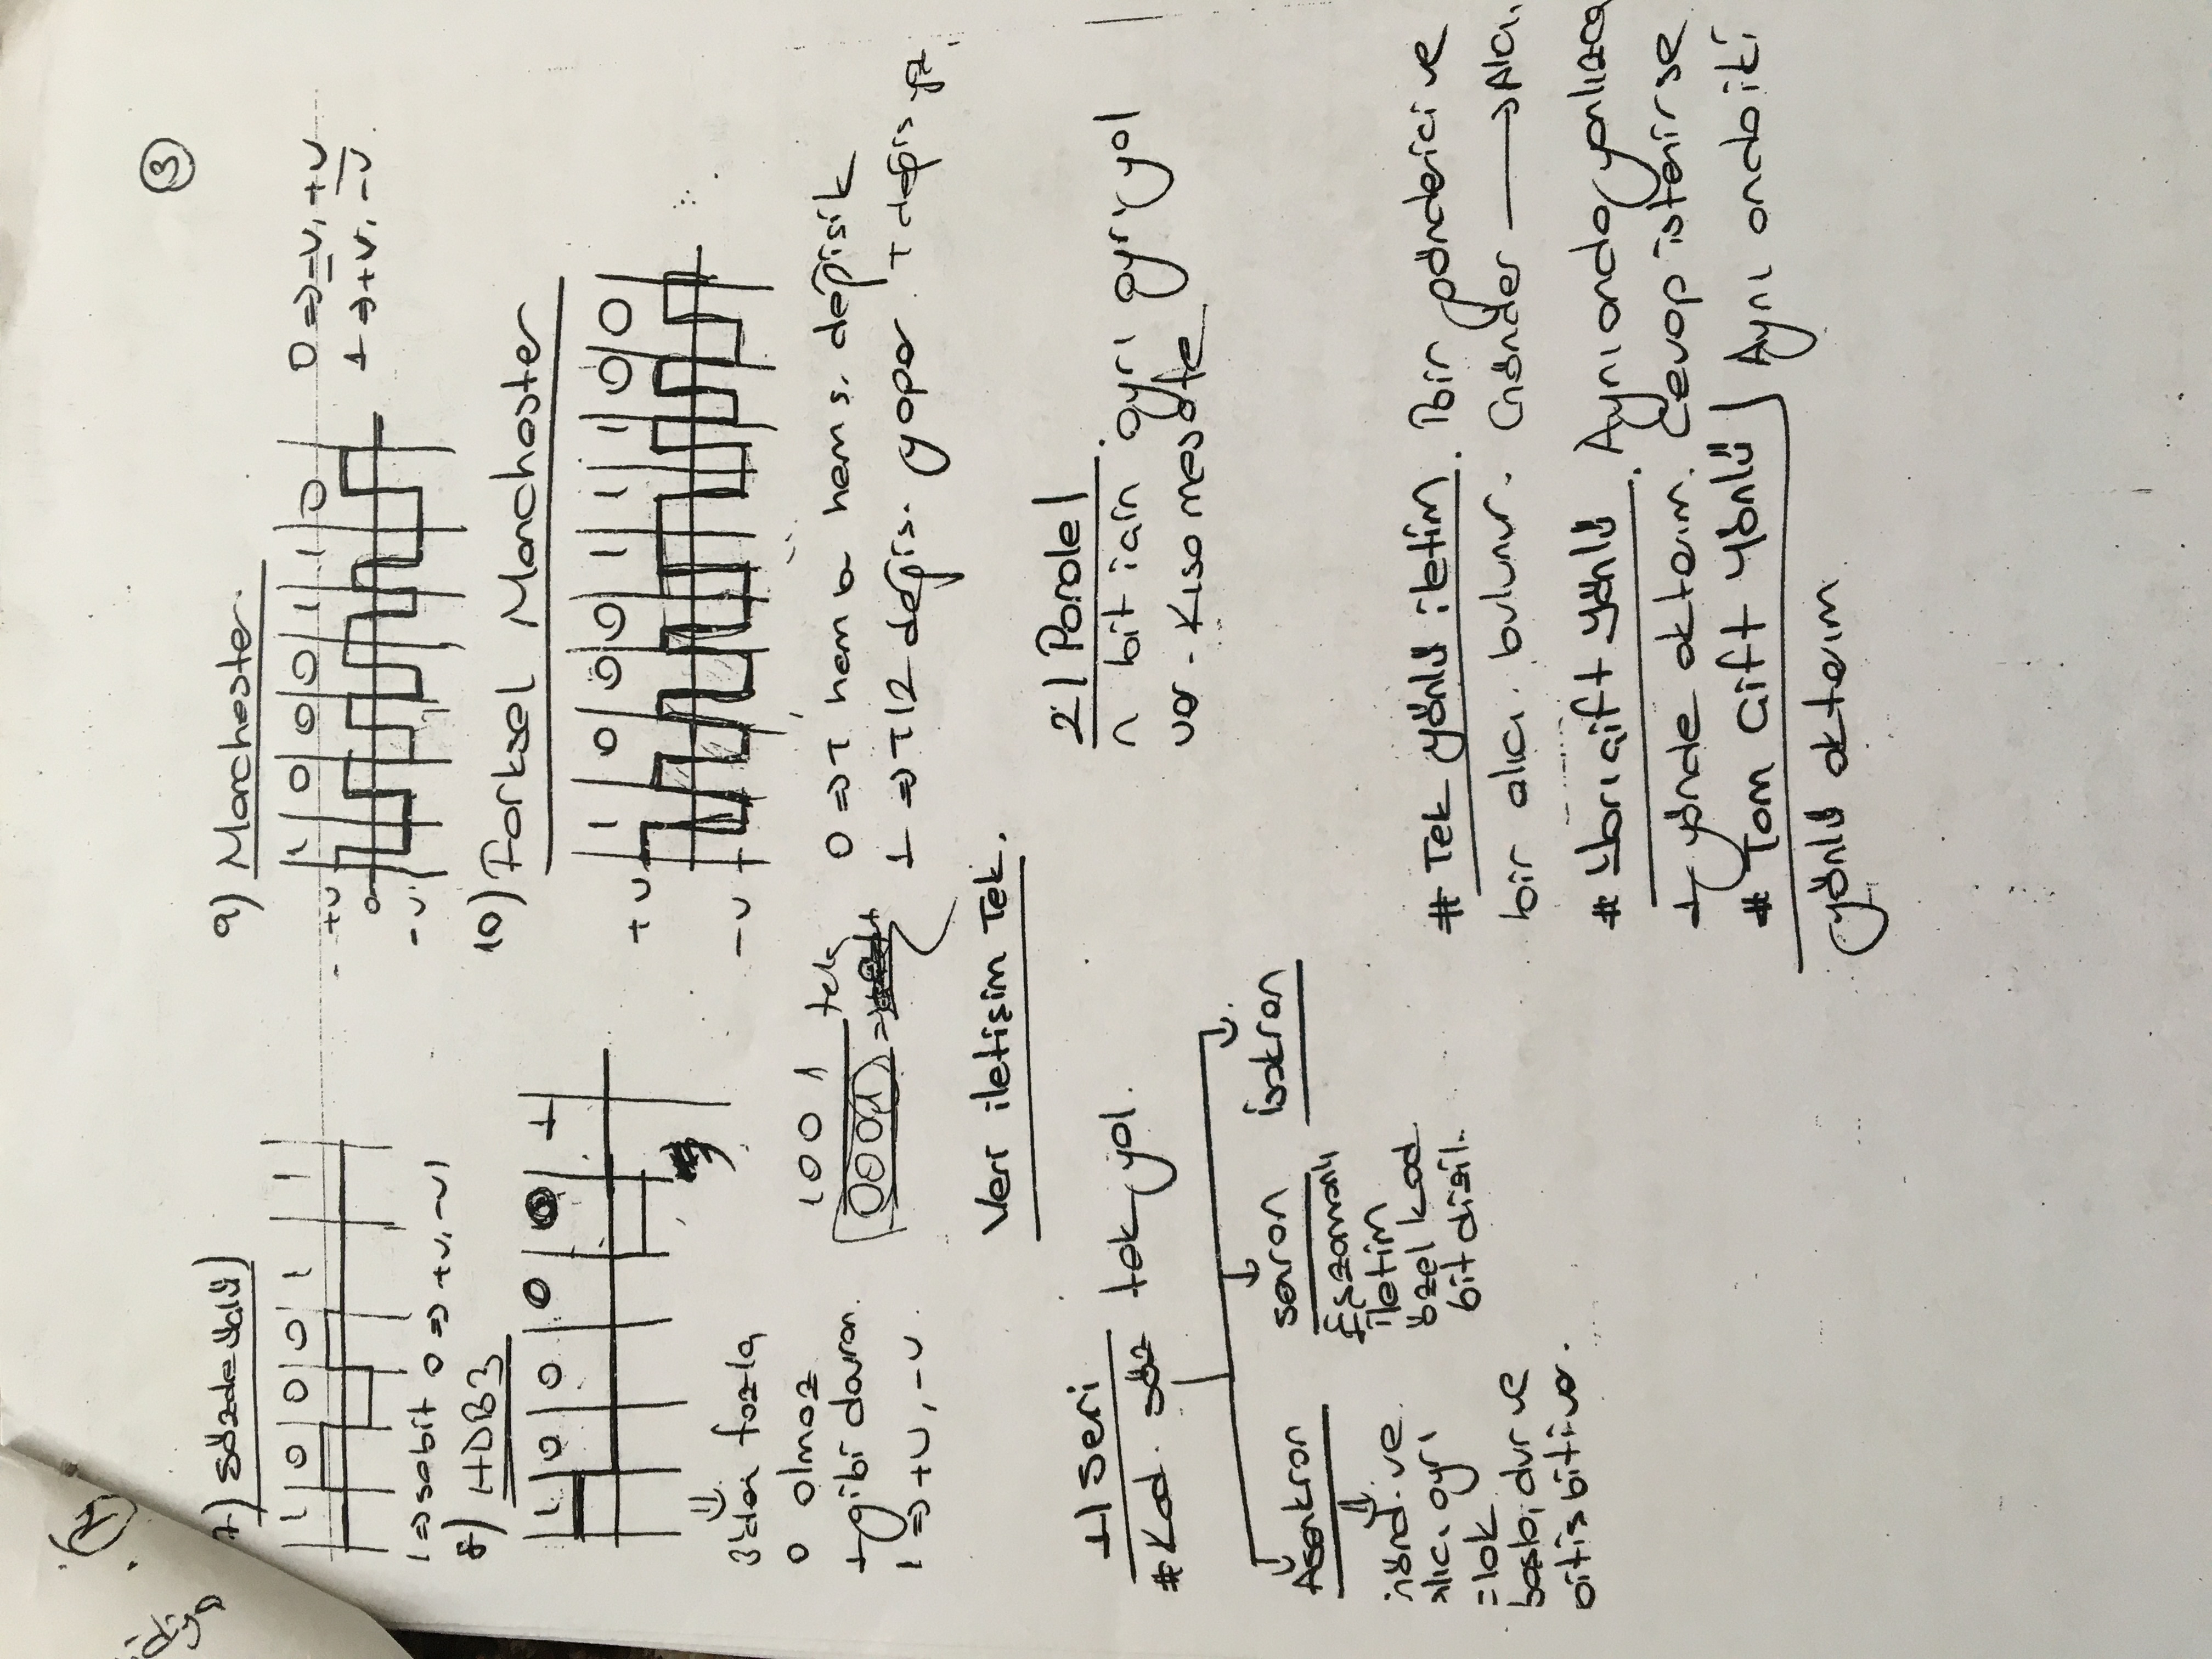 3
7) Sözde üçlü)
1 0 0 0 1 1
1 => sabit 0 => +v, -v)
8) HDB3
1 0 0 0 0 1
3'den fazla
0 olmaz
1 gibi davran.
1 => +v, -v.
1 0 0 1 tek
0001 =>
9) Manchester
1 0 0 0 1 1 0
+v
0
-v
0 => -v, +v
1 => +v, -v.
10) Farksel Manchester
1 0 0 0 1 1 1 0 0
+v
-v
0 => T hem b hem s. değişik
1 => T/2 değiş. yapar. T değiş yz.
Veri iletişim Tek.
1) Seri
#Kod. söz tek yol.
Asenkron
ve
alıcı ayrı
başla, dur ve
bitiş biti var.
senron
Eşzamanlı
iletim
özel kod
bit dizil.
İsokron
2) Paralel
n bit için ayrı ayrı yol
var. Kısa mesafe
# Tek yönlü iletim. Bir gönderici ve
bir alıcı bulunur. Gönder → Alıcı
# Yarı çift Yönlü. Aynı anda yanlızca
1 yönde aktarım. Cevap istenirse
# Tam Çift Yönlü) Aynı anda iki
yönlü aktarım